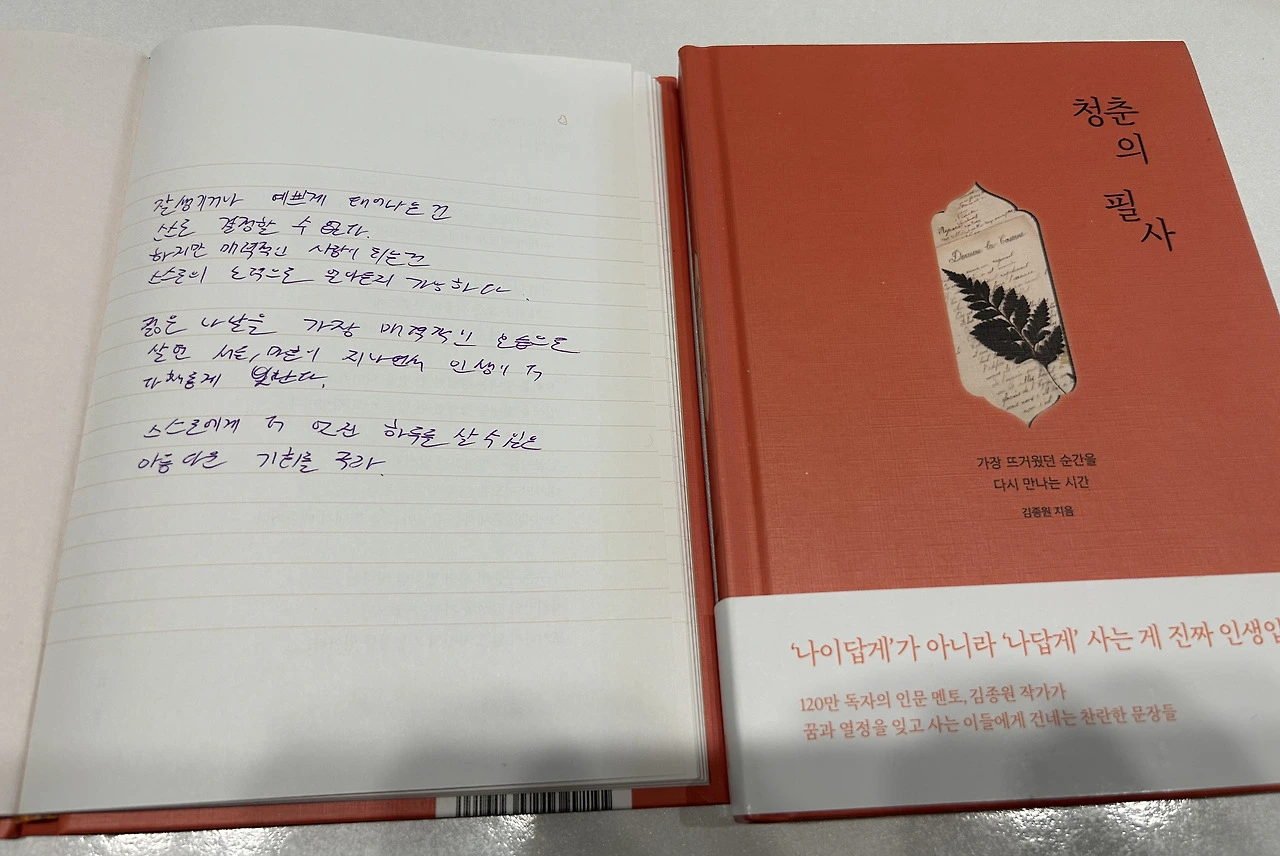 잘생기거나 예쁘게 태어나는 건
스스로 결정할 수 없다.
하지만 매력적인 사람이 되는 건
스스로의 노력으로 얼마든지 가능하다.
젊은 나날을 가장 매력적인 모습으로
살면 서른, 마흔이 지나면서 인생이 더
다채롭게 빛난다.
스스로에게 더 멋진 하루를 살 수 있는
아름다운 기회를 주라.
청춘
의
필
사
가장 뜨거웠던 순간을
다시 만나는 시간
김종원 지음
‘나이답게’가 아니라 ‘나답게’ 사는 게 진짜 인생입
120만 독자의 인문 멘토, 김종원 작가가
꿈과 열정을 잊고 사는 이들에게 건네는 찬란한 문장들